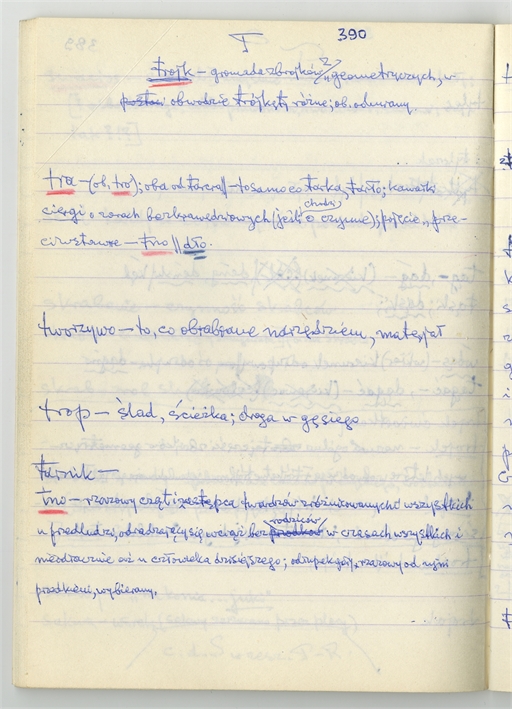 T 390
trojk – gromada zbrojków geometrycznych, w
postaci obwodzie trójkąty różne; ob. odmiany
tra – (ob. tro); oba od tarcia // – to samo co tarka, tarło; kawałki
ciergi o zarach bezkrawędziowych (jeśli chodzi o czynne); pojęcie „prze-
ciwstawne – tno // dło.
tworzywo – to, co obrabiane narzędziem, materjał
trop – ślad, ścieżka; droga w gęsiego
tajnik –
tno – rzazowy część i zastępca twardzów zróżnicowanych wszystkich
u przedludzi, odradzający się wciąż bez przodków rodziców w czasach wszystkich i
nieodłącznie aż u człowieka dzisiejszego; odłupek goły, rzazowy od
przedkieni, wybierany.